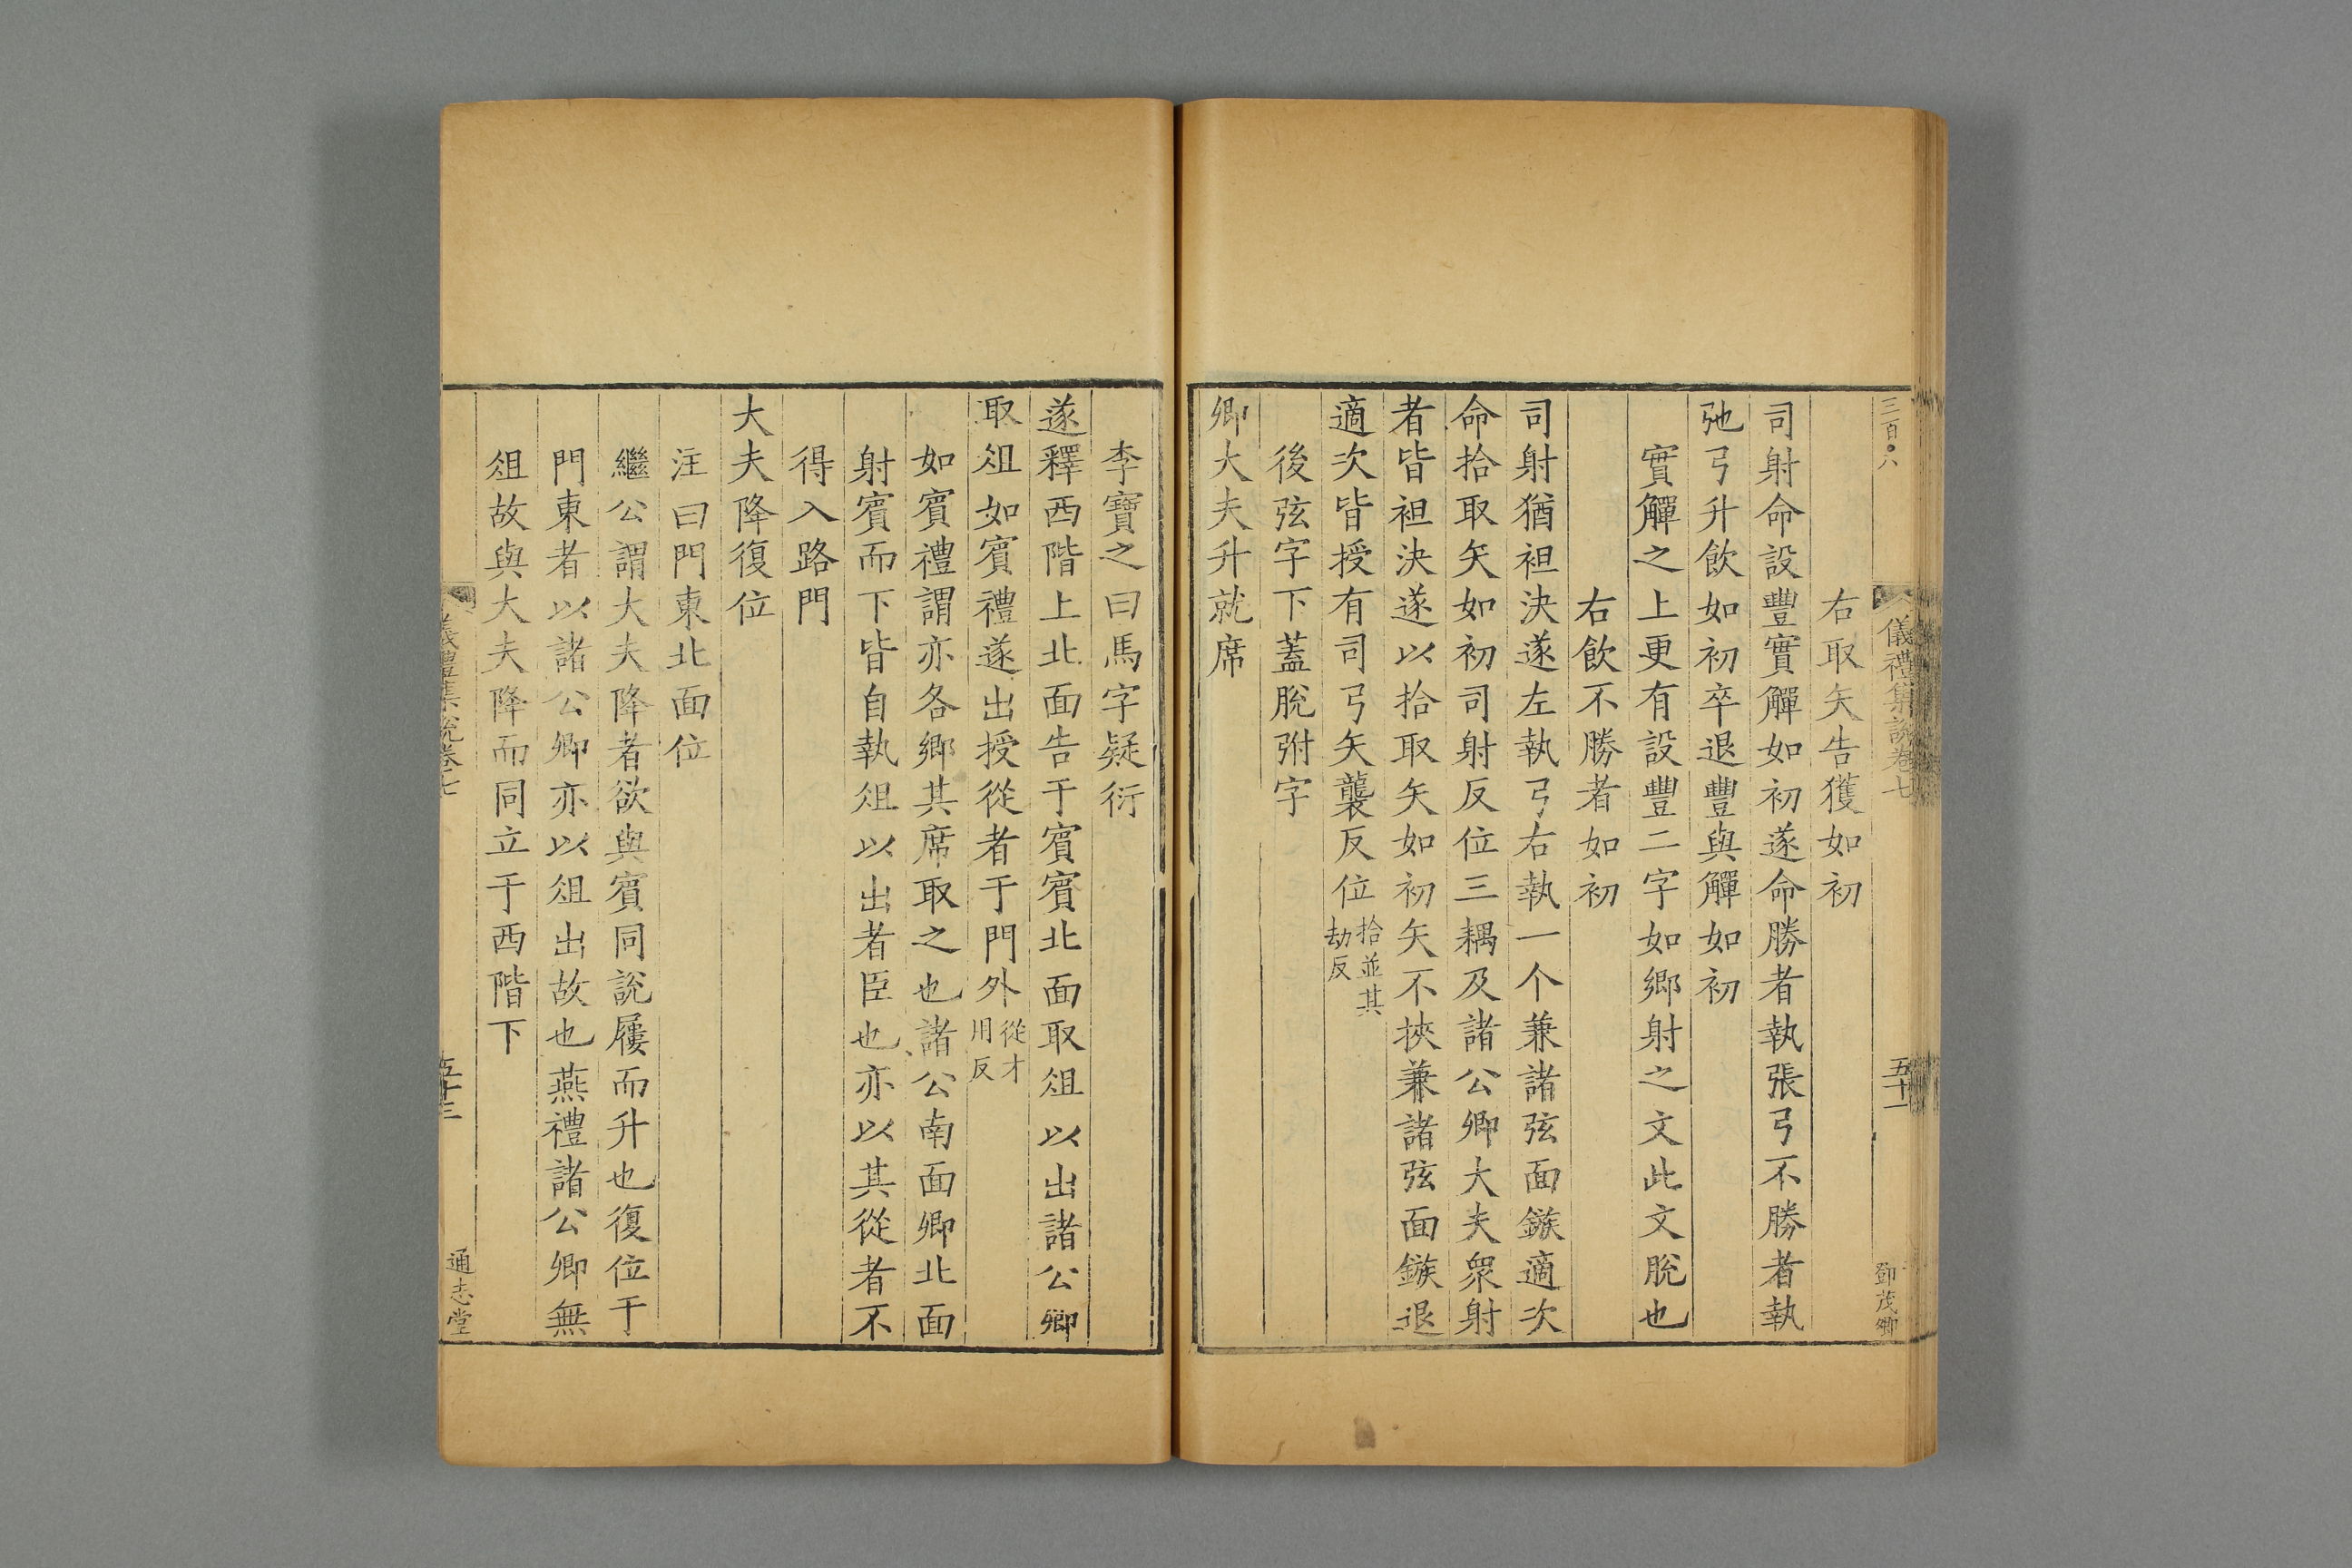 三百〇六
儀禮集說卷七
五十一
鄧茂卿
右取矢告獲如初
司射命設豐實觶如初遂命勝者執張弓不勝者執
弛弓升飲如初卒退豐與觶如初
實觶之上更有設豐二字如鄉射之文此文脫也
右飲不勝者如初
司射猶袒決遂左執弓右執一个兼諸弦面鏃適次
命拾取矢如初司射反位三耦及諸公卿大夫衆射
者皆袒決遂以拾取矢如初矢不挾兼諸弦面鏃退
適次皆授有司弓矢襲反位拾並其劫反
後弦字下蓋脫弣字
卿大夫升就席
李寶之曰馬字疑衍
遂釋西階上北面告于賓賓北面取俎以出諸公卿
取俎如賓禮遂出授從者于門外從才用反
如賓禮謂亦各鄉其席取之也諸公南面卿北面
射賓而下皆自執俎以出者臣也亦以其從者不
得入路門
大夫降復位
注曰門東北面位
繼公謂大夫降者欲與賓同說屨而升也復位于
門東者以諸公卿亦以俎出故也燕禮諸公卿無
俎故與大夫降而同立于西階下
儀禮集說卷七
五十三
通志堂